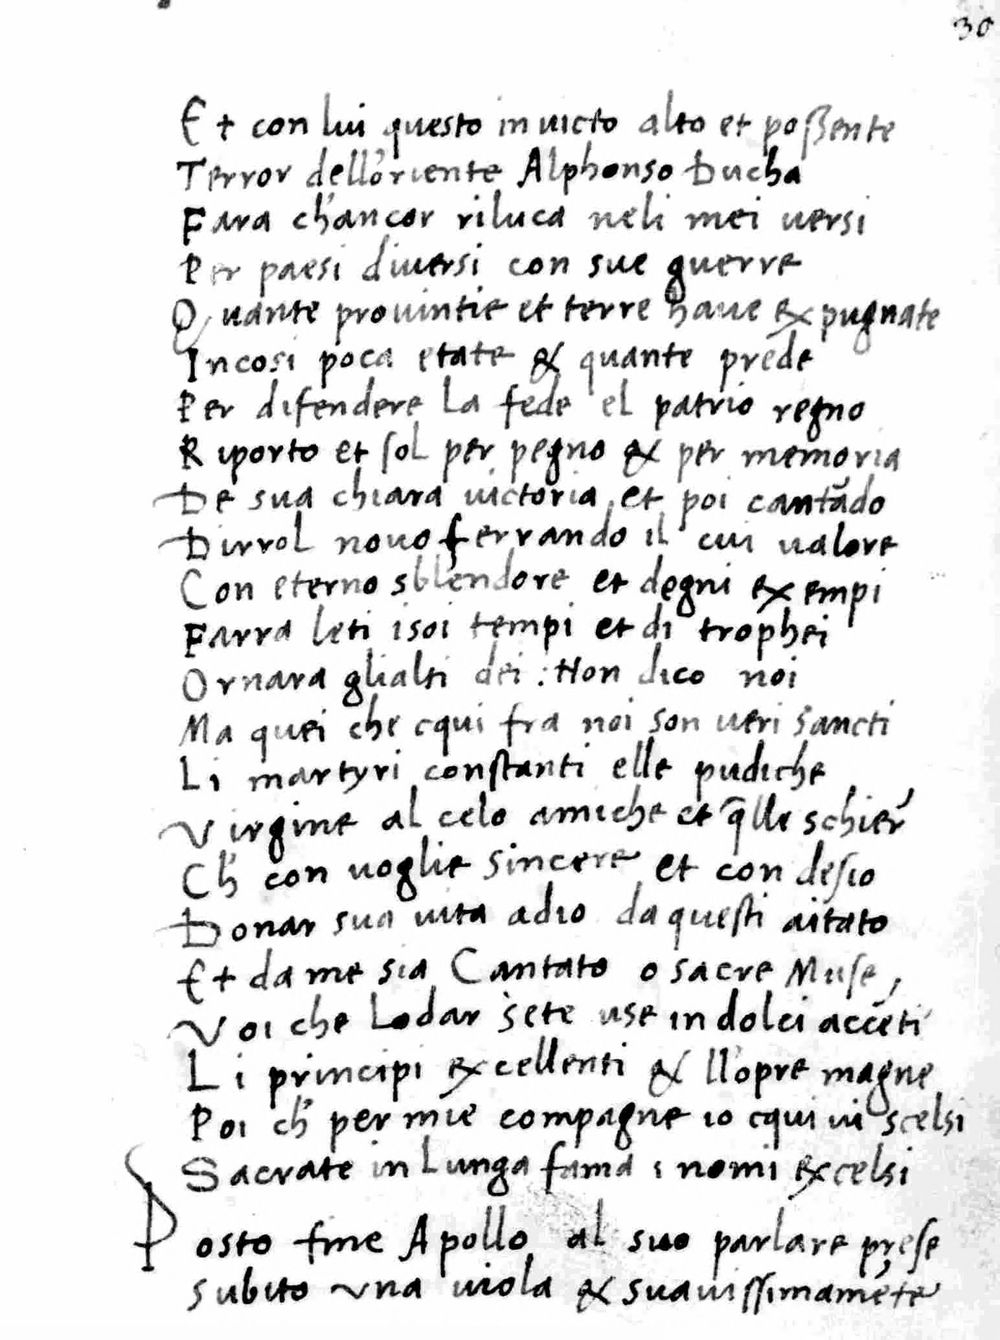 30
Et con lui questo inuicto alto et possente
Terror dell'oriente Alphonso Ducha
Fara ch'ancor riluca neli mei uersi
Per paesi diuersi con sue guerre
Quante prouintie et terre haue expugnate
Incosi poca etate & quante prede
Per difendere la fede el patrio regno
Riporto et sol per pegno & per memoria
De sua chiara uictoria et poi cantādo
Dirrol nouo ferrando il cui ualore
Con eterno sblendore et degni exempi
Farra leti isoi tempi et di trophei
Ornara glialti dei : Non dico noi
Ma quei che cqui fra noi son ueri sancti
Li martyri constanti elle pudiche
Virgine al celo amiche et q̄lle schier'
Ch' con uoglie sincere et con desio
Donar sua uita adio da questi aitato
Et da me sia Cantato o sacre Muse,
Voi che Lodar sete use in dolci accēti
Li principi excellenti & ll'opre magne
Poi ch' per mie compagne io cqui ui scelsi
Sacrate in Lunga fama i nomi excelsi
Posto fine Apollo al suo parlare prese
subito una uiola & suauissimamēte